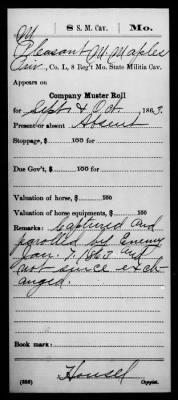 M 8 S. M. Cav. Mo.
Pleasant M Maples
Pvt., Co. L, 8 Reg't Mo. State Militia Cav.
Appears on
Company Muster Roll
for Sept & Oct, 1863.
Present or absent Absent
Stoppage, $ 100 for
Due Gov't, $ 100 for
Valuation of horse, $ 100
Valuation of horse equipments, $ 100
Remarks: Captured and
parolled by Enemy
Jan. 7, 1863 and
not since exch
anged.
Book mark:
Housel
(356) Copyist.